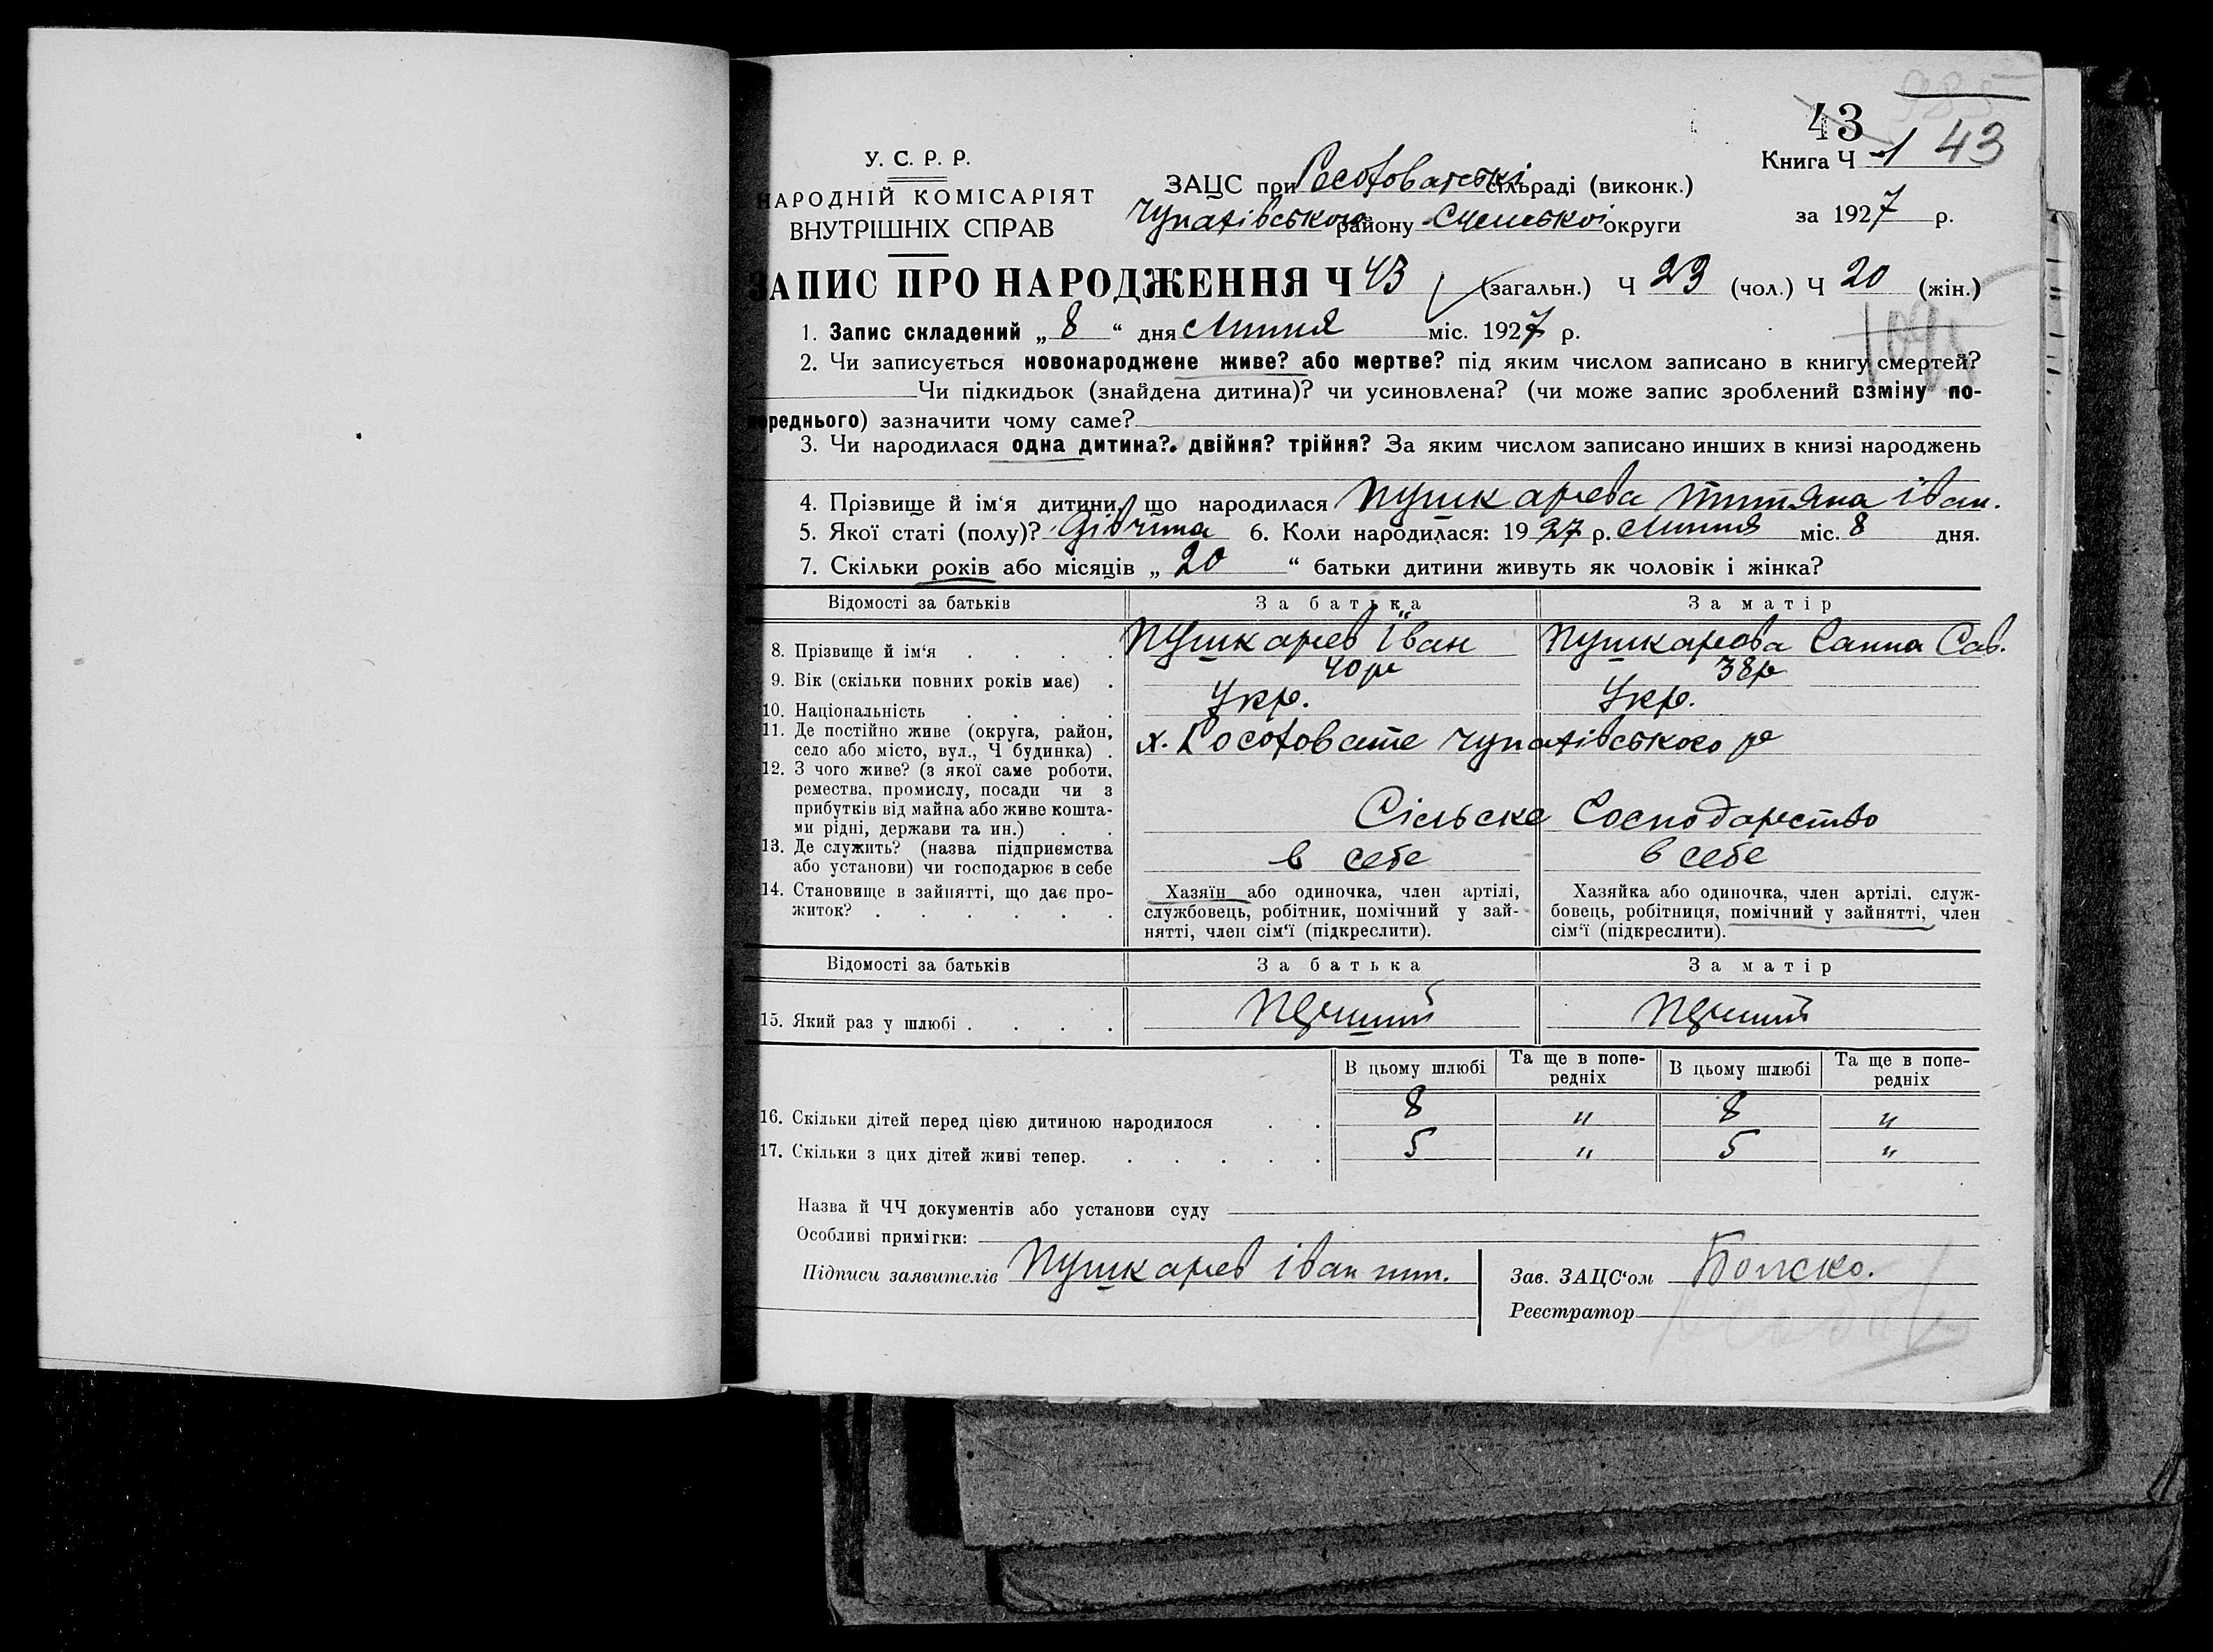 985
43
У. С. Р. Р.
Книга Ч 1 43
НАРОДНІЙ КОМІСАРІЯТ
ЗАЦС при сільраді (виконк.)
ВНУТРІШНІХ СПРАВ
Чупахівського району Сумської округи
за 1927 р.
ЗАПИС ПРО НАРОДЖЕННЯ Ч 43 (загальн.) Ч 23 (чол.) Ч 20 (жін.)
1. Запис складений „ 8 “ дня Липня міс. 1927 р.
2. Чи записується новонароджене живе? або мертве? під яким числом записано в книгу смертей?
Чи підкидьок (знайдена дитина)? чи усиновлена? (чи може запис зроблений взміну по-
переднього) зазначити чому саме?
3. Чи народилася одна дитина? двійня? трійня? За яким числом записано инших в книзі народжень
4. Прізвище й ім‘я дитини, що народилася Пушкарева Титяна Іван.
5. Якої статі (полу)? дівчина 6. Коли народилася: 1927 р. Липня міс. 8 дня.
7. Скільки років або місяців „ 20 “ батьки дитини живуть як чоловік і жінка?
Відомості за батьків За батька За матір
8. Прізвище й ім‘я . . . . Пушкарев Іван Пушкарова Ганна Сав.
9. Вік (скільки повних років має) . 40 р 38 р
10. Національність . . . . Укр. Укр.
11. Де постійно живе (округа, район,
село або місто, вул., Ч будинка) . х. Росоховате Чупахівського р
12. З чого живе? (з якої саме роботи,
ремества, промислу, посади чи з
прибутків від майна або живе кошта-
ми рідні, держави та ин.) . . Сільске Господарство
13. Де служить? (назва підприємства
або установи) чи господарює в себе в себе в себе
14. Становище в зайнятті, що дає про-
житок? . . . . . .
Хазяїн або одиночка, член артілі,
службовець, робітник, помічний у зай-
нятті, член сім‘ї (підкреслити).
Хазяйка або одиночка, член артілі, служ-
бовець, робітниця, помічний у зайнятті, член
сім‘ї (підкреслити).
Відомості за батьків За батька За матір
15. Який раз у шлюбі . . . . Перший Перший
В цьому шлюбі Та ще в попе-
редніх В цьому шлюбі Та ще в попе-
редніх
16. Скільки дітей перед цією дитиною народилося . . 8 „ 8 „
17. Скільки з цих дітей живі тепер. . . . . . 5 „ 5 „
Назва й ЧЧ документів або установи суду
Особливі примітки:
Підписи заявителів Пушкарев Іван
Зав. ЗАЦС‘ом
Реєстратор